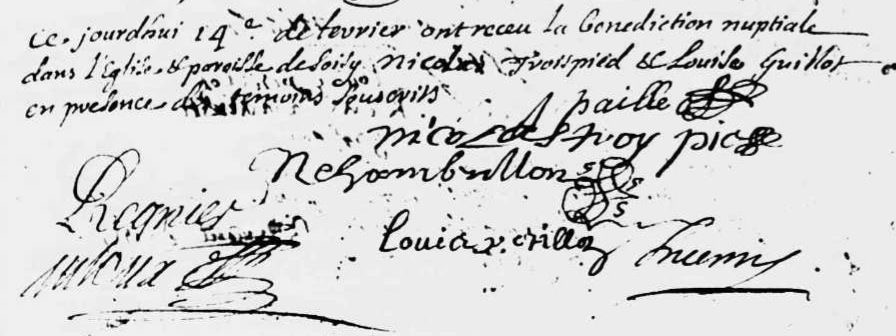 ce jourdhui 14e de fevrier ont receu la benediction nuptiale
dans l'Eglise & paroisse de soisy Nicolas Troispied & Louise Guillot
en presence des temoins sousserits
paille
nicolas troy pie
N chambullon
Regnier
Louis